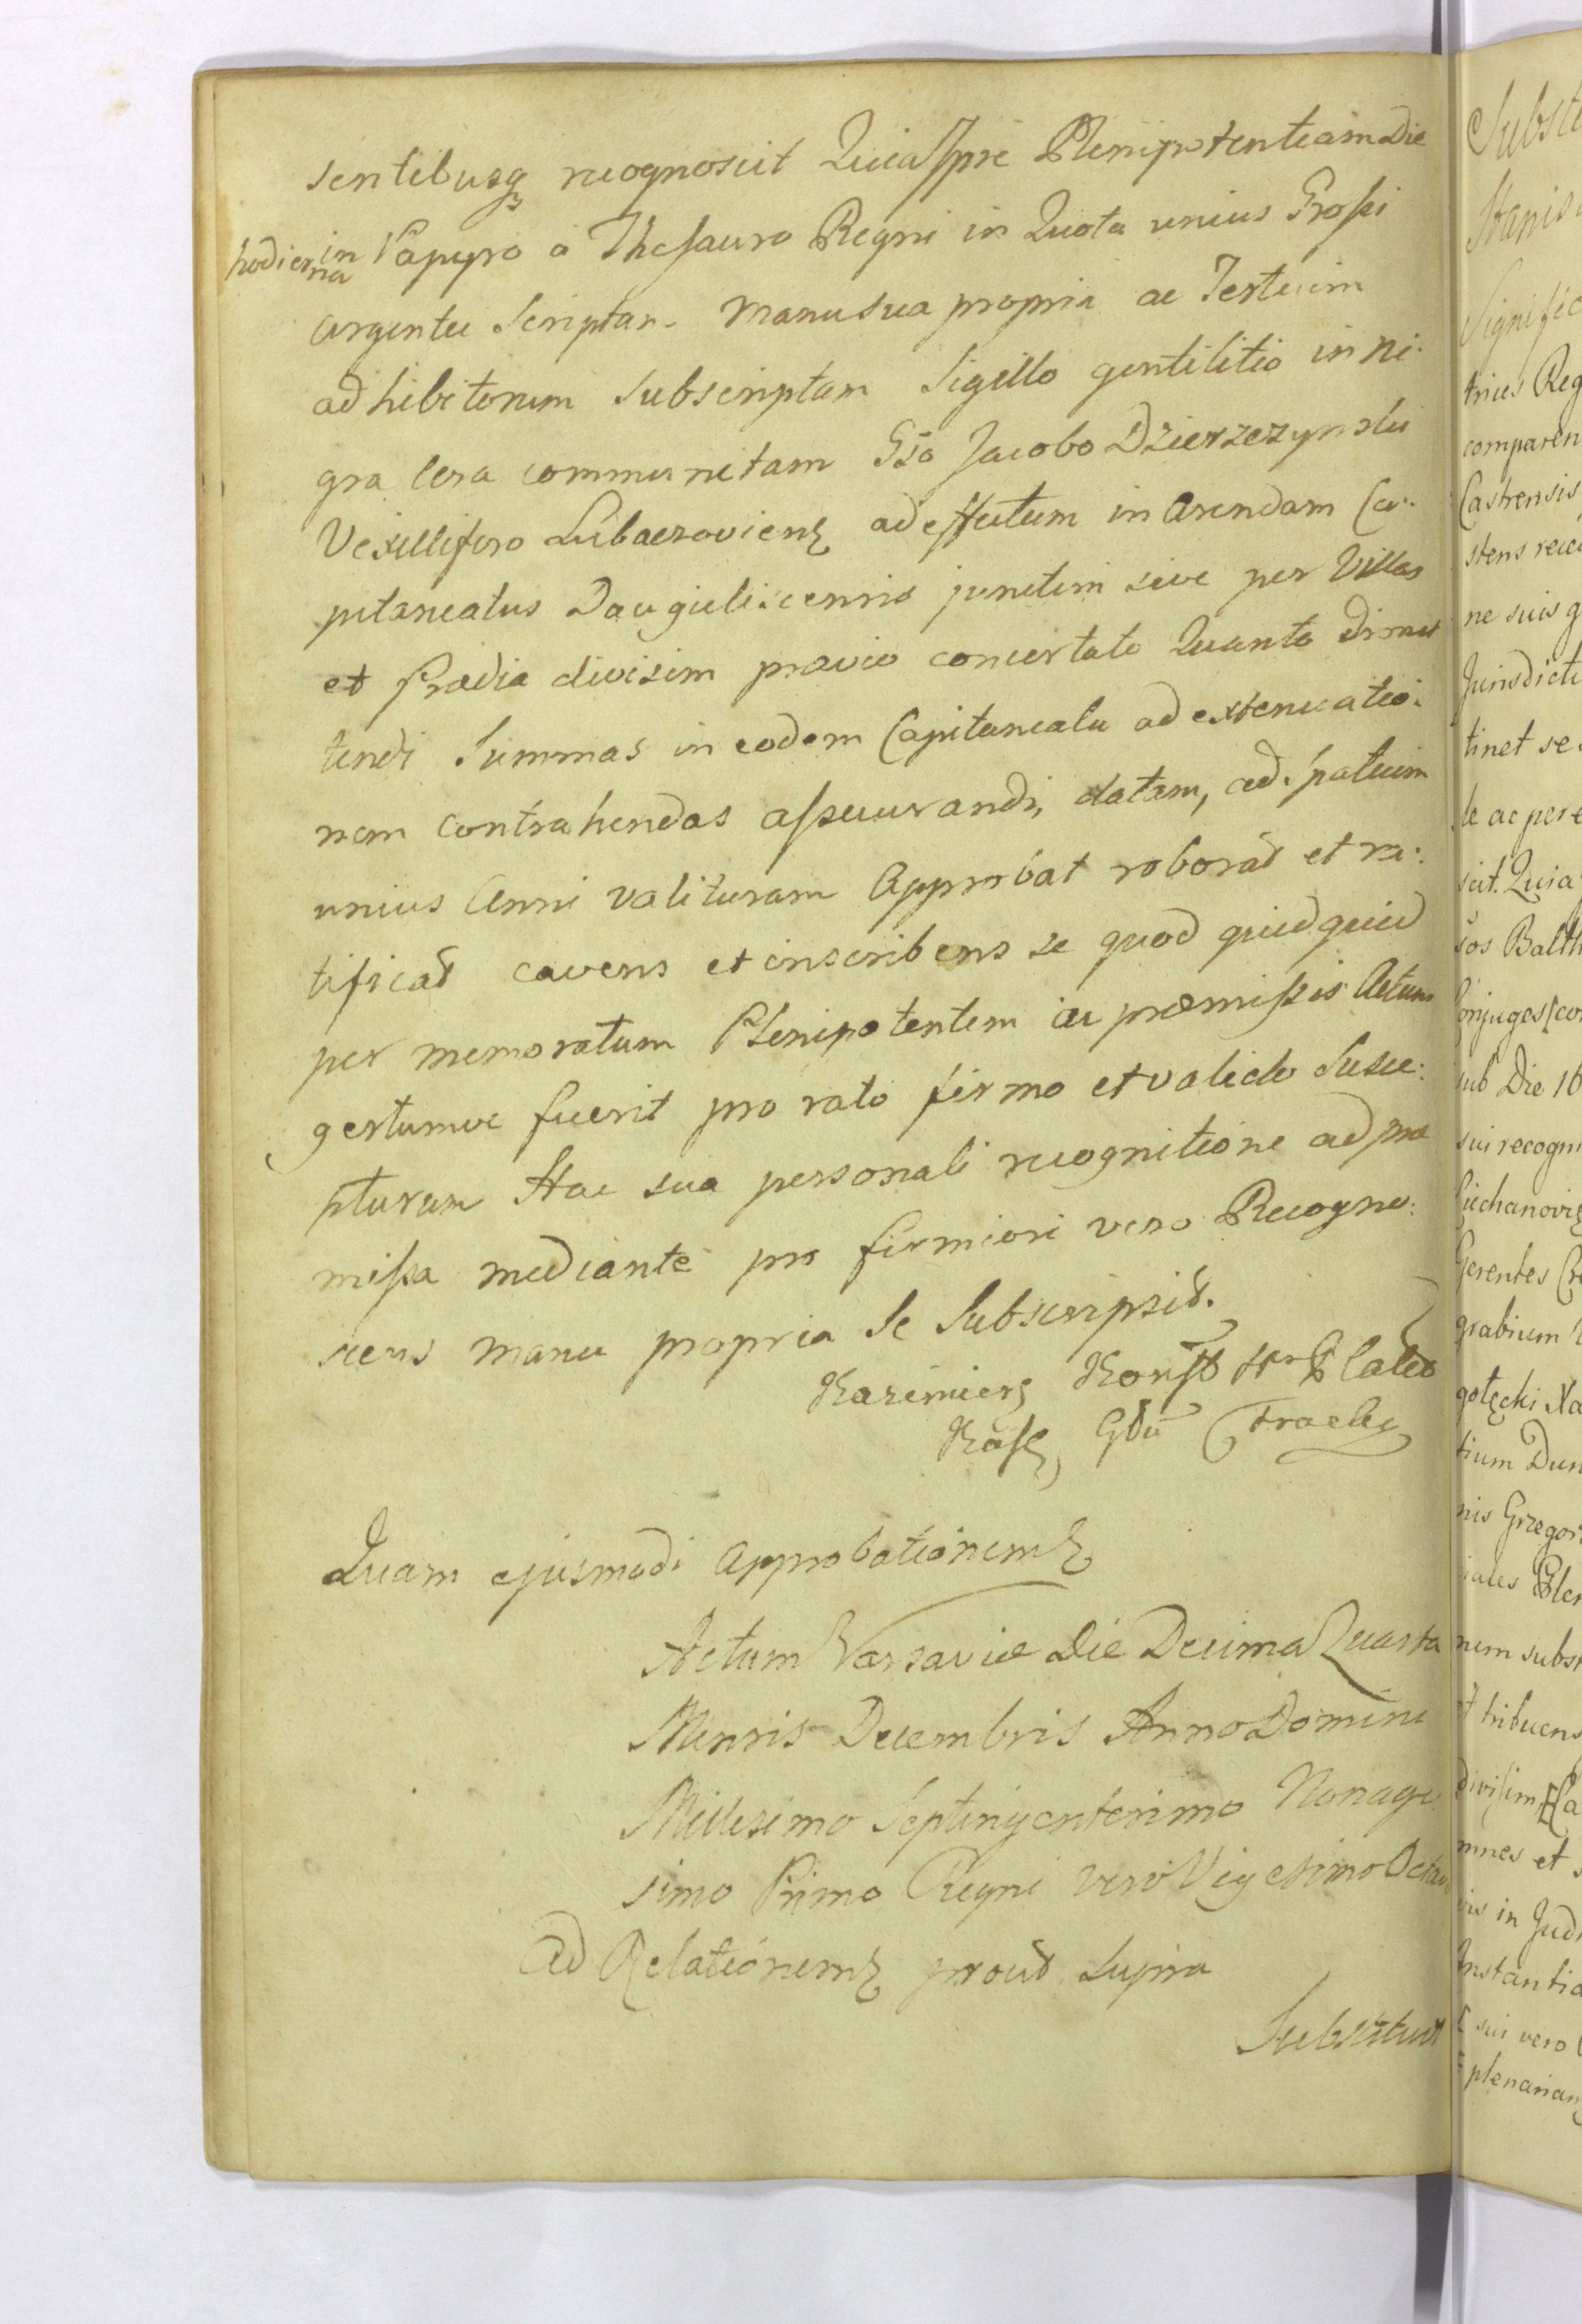 sentibusq recognoscit Quia Ipse Plenipotentiam Die
hodierna in Papyro a Thesauro Regni in Quota unius Grossi
argentei Scriptam Manu sua propria ac Testium
adhibitorum Subscriptam Sigillo gentilitio in ni:
gra cera communitam Gso Jacobo Dzierzczynski
Vexillifero Lubaczovien ad effectum in Arendam Ca:
pitaneatus Daugieliscensis junctim sive per Villas
et Prædia divisim prævio concertato Quanto dimit
tendi Summas in eodem Capitaneatu ad extenuatio:
nem contrahendas assecurandi, datam, ad spatium
unius Anni valituram Approbat roborat et ra:
tificat cavens et inscribens se quod quidquid
per memoratum Plenipotentem in præmissis Actum
gestumve fuerit pro rato firmo et valido susce:
pturum Hac sua personali recognitione ad præ
missa mediante pro firmiori vero Recogno:
scens manu propria se Subscripsit.
Kazimierz Konst Plater
Kasz
Quam ejusmodi Approbationem
Actum Varsaviæ Die Decima Quarta
Mensis Decembris Anno Domini
Millesimo Septingentesimo Nonage
simo Primo Regni vero Vigesimo Octavo
Ad Relationem prout supra
Substitut
Substi
Stanis
Signific
trius Reg
comparen
Castrensis
stens rece
ne suis
Jurisdicti
tinet se
le ac per
scit. Quia
sos Balth
Conjuges
sub Die 16
sui recogn
Ciechanovi
Gerentes
grabium
gołęcki
tium Dun
nis Grzegor
iales Plen
nem subst
et tribuens
divisim
mnes et
in Judi
Instantia
sui vero
plenariam